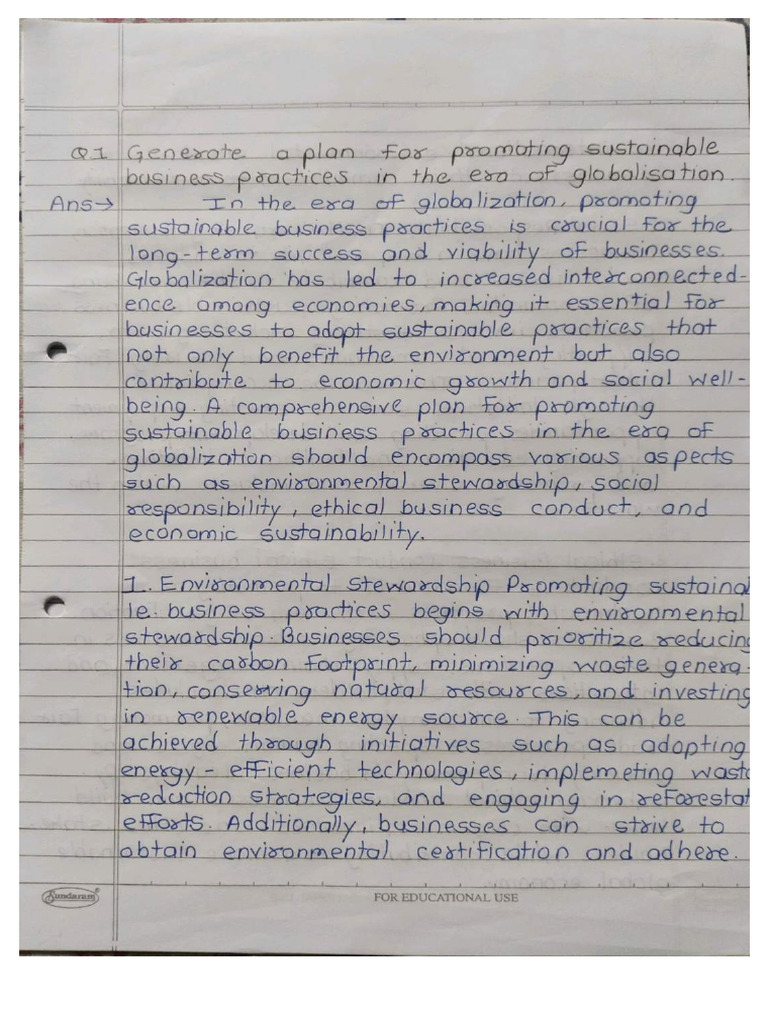 Q1 Generate a plan for promoting sustainable
business practices in the era of globalisation.
Ans→ In the era of globalization, promoting
sustainable business practices is crucial for the
long-term success and viability of businesses.
Globalization has led to increased interconnected-
ence among economies, making it essential for
businesses to adopt sustainable practices that
not only benefit the environment but also
contribute to economic growth and social well-
being. A comprehensive plan for promoting
sustainable business practices in the era of
globalization should encompass various aspects
such as environmental stewardship, social
responsibility, ethical business conduct, and
economic sustainability.
1. Environmental Stewardship Promoting sustainab
le. business practices begins with environmental
stewardship. Businesses should prioritize reducing
their carbon footprint, minimizing waste genera-
tion, conserving natural resources, and investing
in renewable energy source. This can be
achieved through initiatives such as adopting
energy-efficient technologies, implemeting waste
reduction strategies, and engaging in reforestat
efforts. Additionally, businesses can strive to
obtain environmental certification and adhere.
Sundaram®
FOR EDUCATIONAL USE